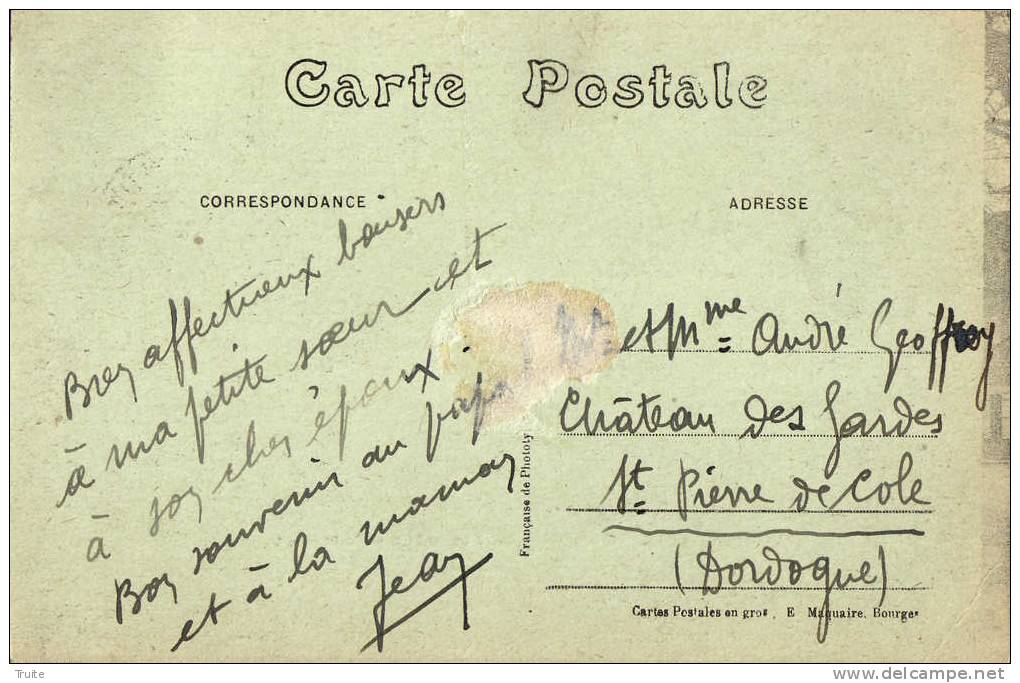 Carte Postale
CORRESPONDANCE
ADRESSE
Bien affectueux baisers
à ma petite sœur et
à son cher époux.
Bon souvenir au papa
et à la maman
Jean
et Mme André Geoffroy
Château des Gardes
St Pierre de Cole
(Dordogne)
Française de Phototy
Cartes Postales en gros, E Maquaire, Bourges
Truite
www.delcampe.net